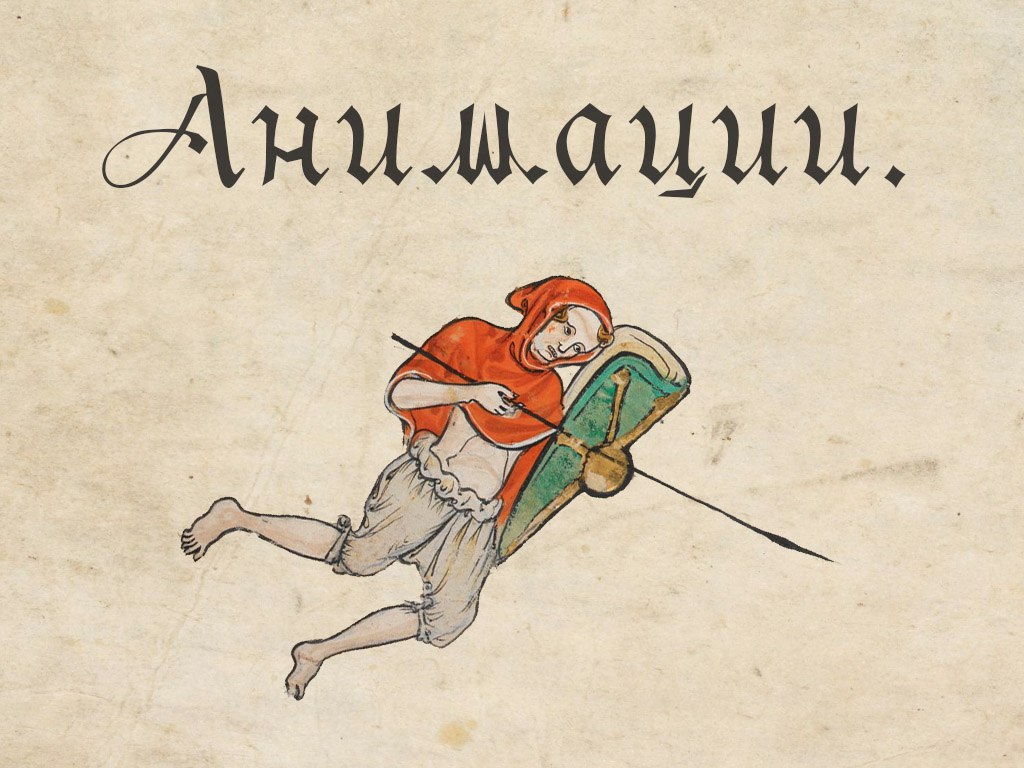 Анимации.